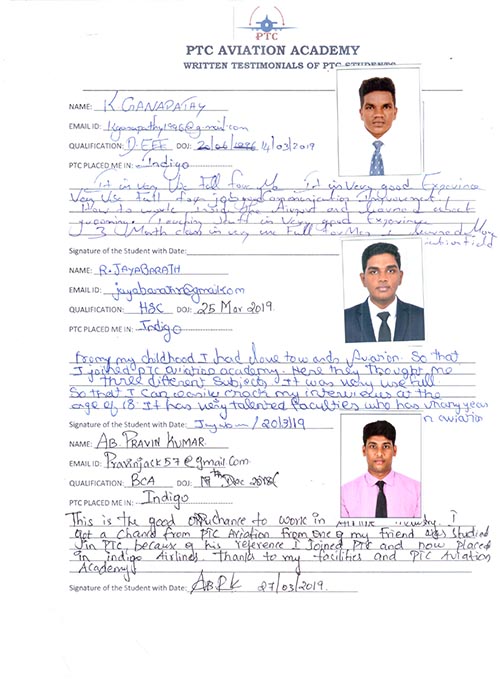 PTC
PTC AVIATION ACADEMY
WRITTEN TESTIMONIALS OF PTC STUDENTS
NAME: K. GANAPATHY
EMAIL ID: @gmail.com
QUALIFICATION: D.EEE DOJ: 14/03/2019
PTC PLACED ME IN: Indigo
It is very Use full for Me It is very good Experience
Very Use full for job communication improvement
How to work inside the Airport and learned about
grooming. staff is very good
3 Month class is very use Full for Me.
Signature of the Student with Date:
NAME: R. JAYABARATH
EMAIL ID: @gmail.com
QUALIFICATION: HSC DOJ: 25 Mar 2019.
PTC PLACED ME IN: Indigo
From my childhood I had love towards Aviation. So that
I joined PTC aviation academy. Here they thought me
three different subjects. It was very use full.
So that I can easily crack my interviews at the
age of 18. It has very talented faculties who has many years
n aviation
Signature of the Student with Date: / 20/3/19
NAME: AB. PRAVIN KUMAR
EMAIL ID: Pravinjack57@gmail.com
QUALIFICATION: BCA DOJ: Dec 2018
PTC PLACED ME IN: Indigo
This is the good to work in I
got a chance from PTC Aviation from one of my friend studied
in PTC, because of his reference I joined PTC and now placed
in indigo Airlines. thanks to my facilities and PTC Aviation
Academy
Signature of the Student with Date: 27/03/2019.